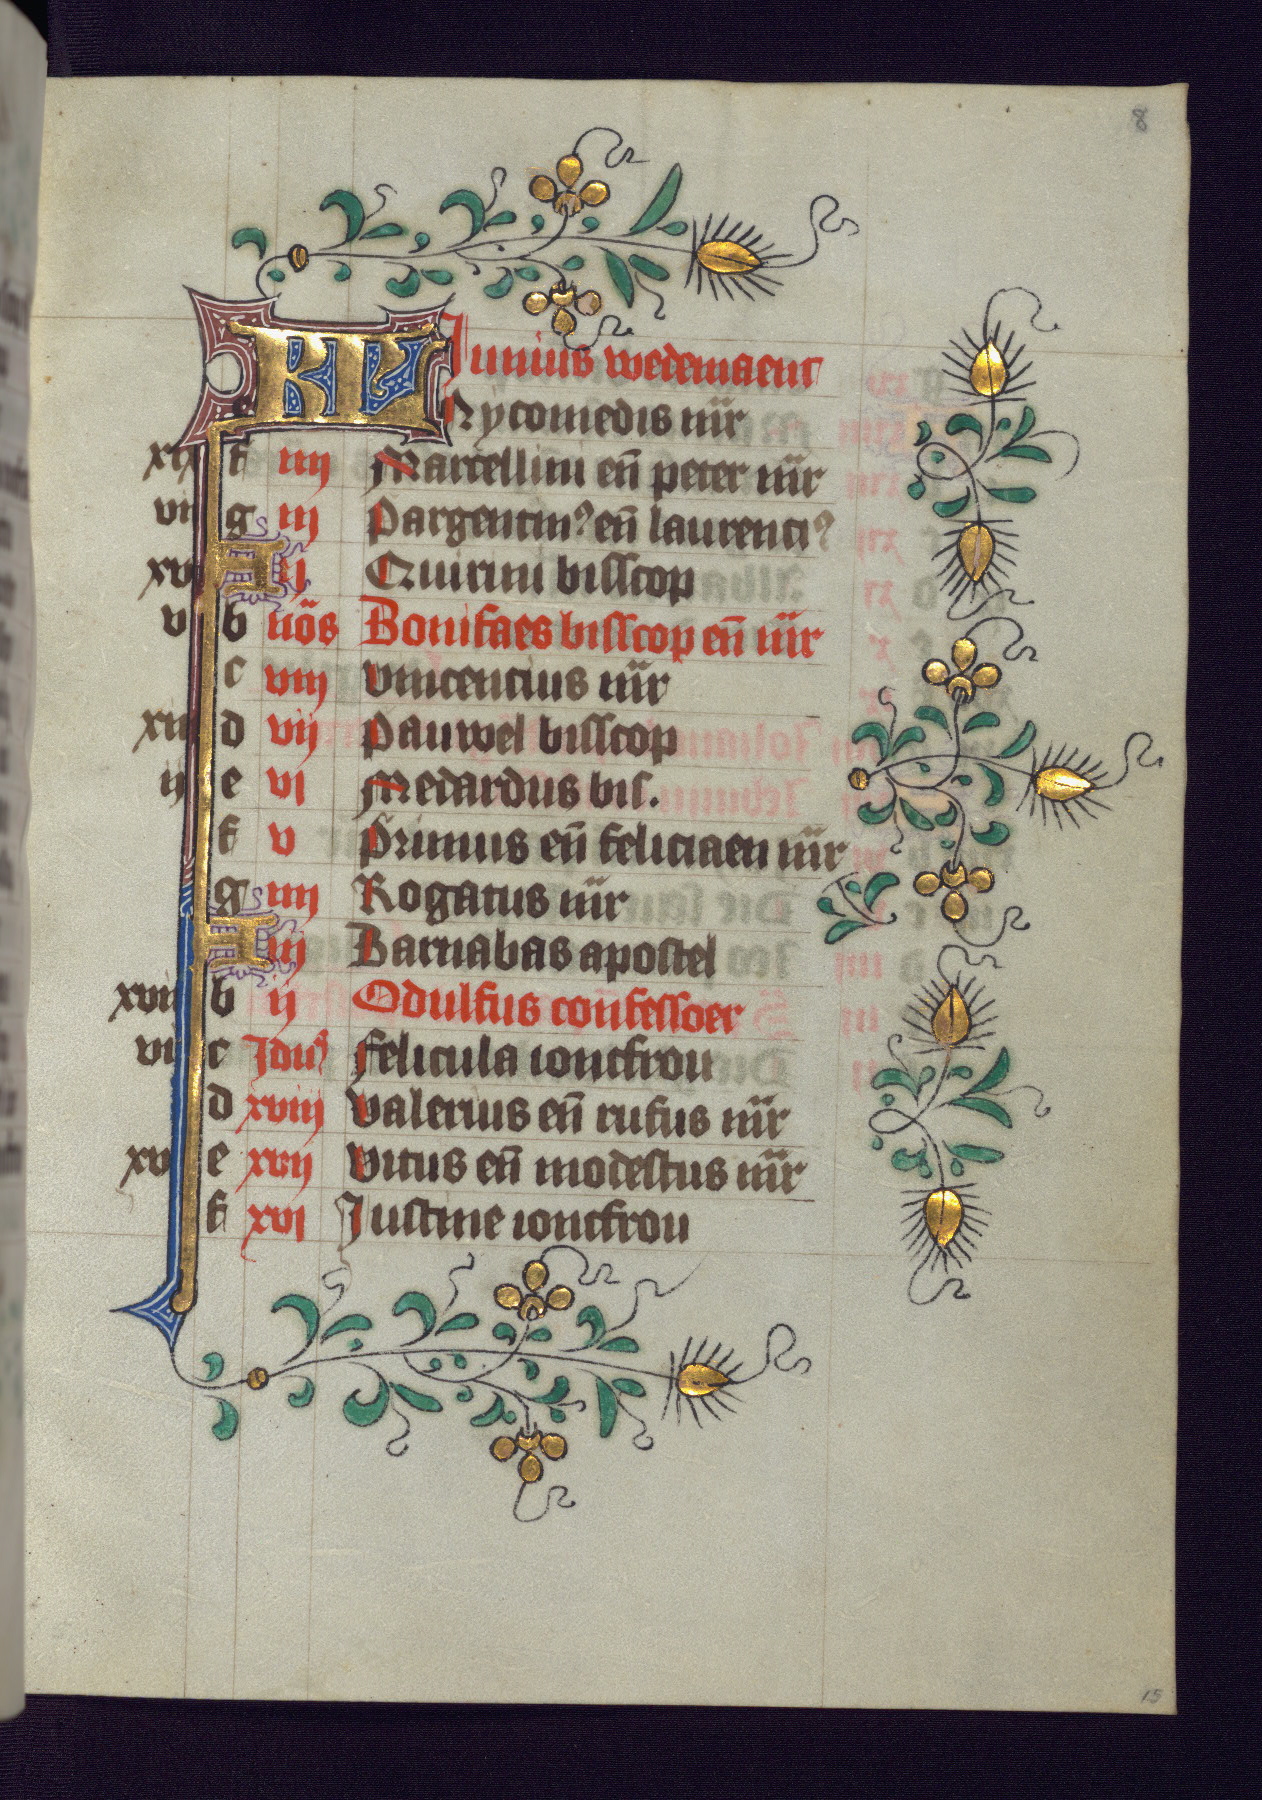 8
KL Junius wedemaent
Nycomedis mr̄
xix f iiij Marcellini en̄ peter mr̄
viij g iij Pargentinꝰ en̄ laurenciꝰ
xvi A ij Quirini bisscop
v b nōs Bonifaes bisscop en̄ mr̄
c viij vincencius mr̄
xiij d vij pauwel bisscop
ij e vi Medardus bis.
f v Primus en̄ feliciaen mr̄
g iiij Rogatus mr̄
A iij Barnabas apostel
xviij b ij Odulfus confessoer
vij c Idus felicula ioncfrou
d xviij valerius en̄ rufus mr̄
xv e xvij vitus en̄ modestus mr̄
f xvi Justine ioncfrou
15